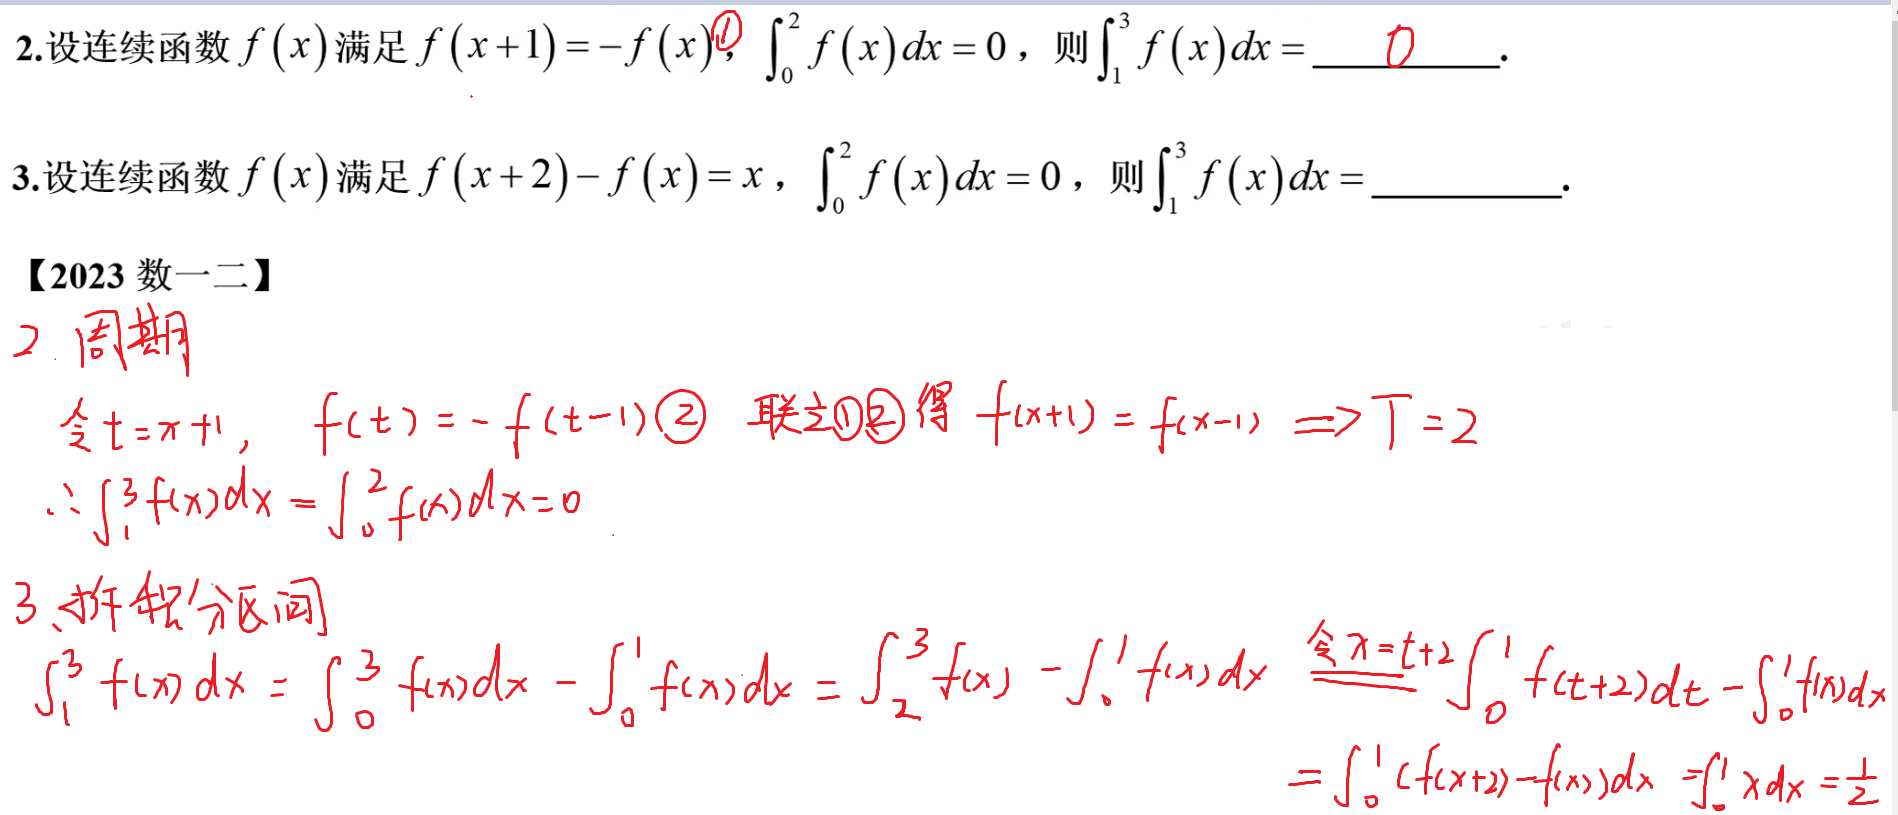 2.设连续函数 f(x) 满足 f(x+1)=-f(x)①, ∫₀² f(x)dx=0，则∫₁³ f(x)dx=____0____.
3.设连续函数 f(x) 满足 f(x+2)-f(x)=x，∫₀² f(x)dx=0，则∫₁³ f(x)dx=________.
【2023 数一二】
2. 周期
令t=x+1, f(t)=-f(t-1)② 联立①②得 f(x+1)=f(x-1) ⟹ T=2
∴∫₁³ f(x)dx=∫₀² f(x)dx=0
3、拆积分区间
∫₁³ f(x)dx=∫₀³ f(x)dx-∫₀¹ f(x)dx=∫₂³ f(x)-∫₀¹ f(x)dx 令x=t+2 ∫₀¹ f(t+2)dt-∫₀¹ f(x)dx
=∫₀¹ (f(x+2)-f(x))dx =∫₀¹ xdx=1/2